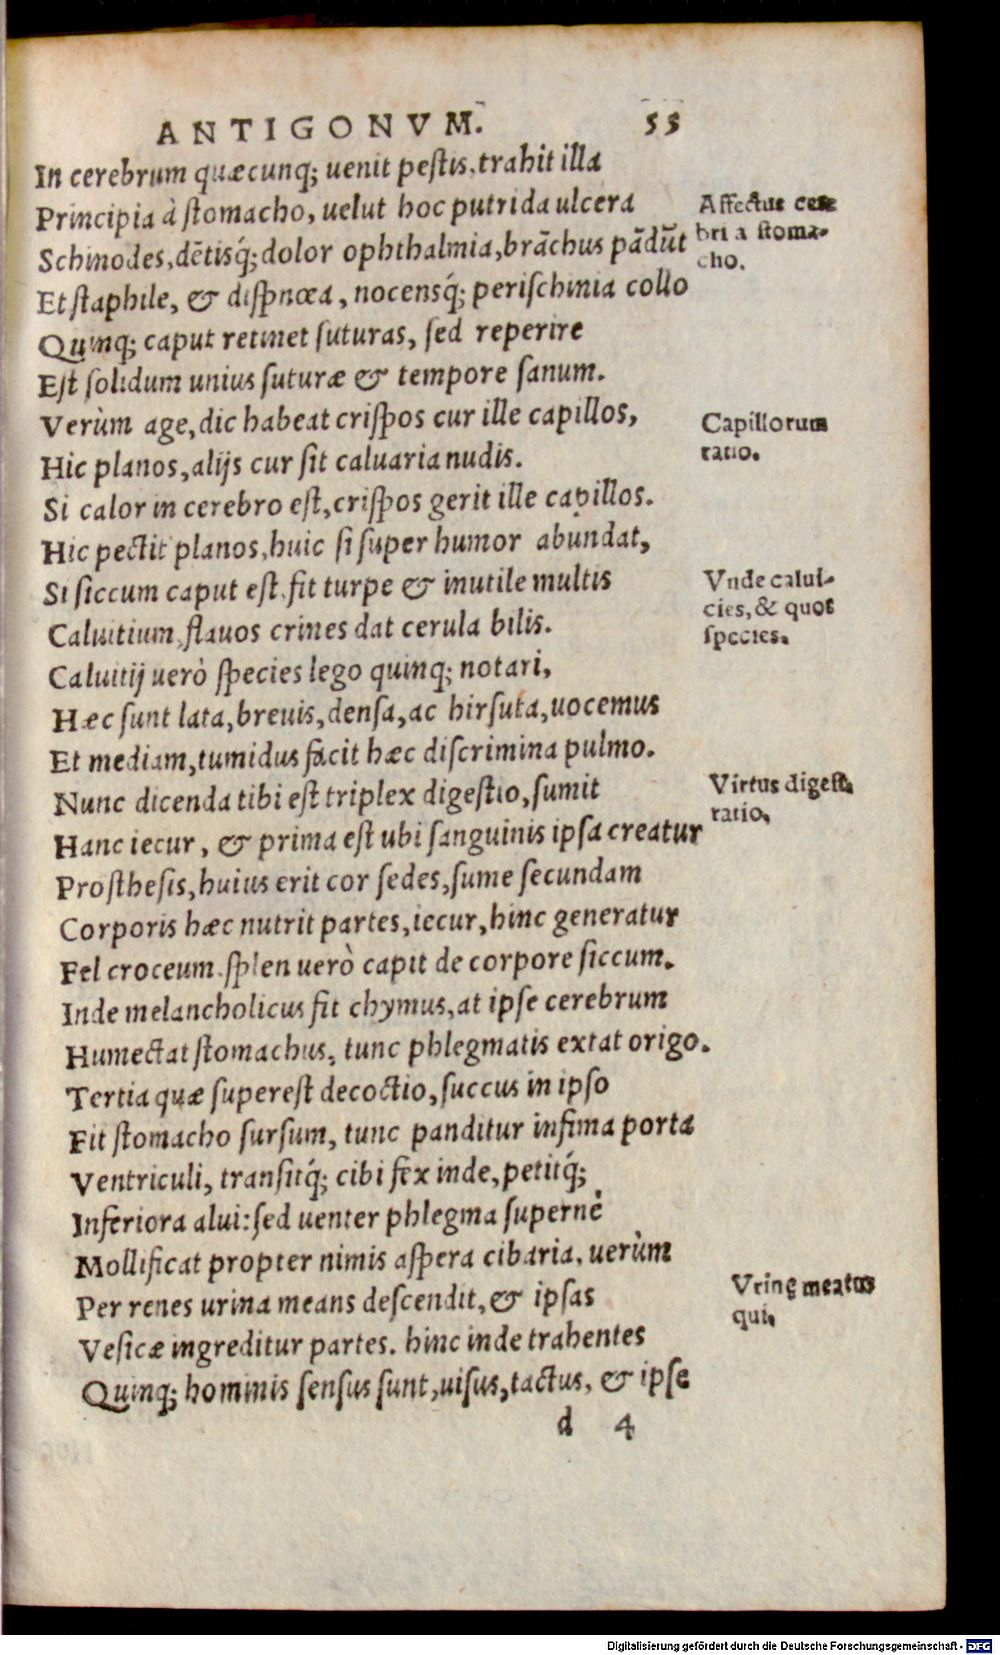 ANTIGONVM. 55
In cerebrum quæcunq; uenit pestis, trahit illa
Principia à stomacho, uelut hoc putrida ulcera
Schinodes, dētisq́; dolor ophthalmia, brāchus pādūt
Et staphile, & dispnœa, nocensq́; perischinia collo
Quinq; caput retinet suturas, sed reperire
Est solidum unius suturæ & tempore sanum.
Verùm age, dic habeat crispos cur ille capillos,
Hic planos, alijs cur sit caluaria nudis.
Si calor in cerebro est, crispos gerit ille capillos.
Hic pectit planos, huic si super humor abundat,
Si siccum caput est, fit turpe & inutile multis
Caluitium, flauos crines dat cerula bilis.
Caluitij uerò species lego quinq; notari,
Hæc sunt lata, breuis, densa, ac hirsuta, uocemus
Et mediam, tumidus facit hæc discrimina pulmo.
Nunc dicenda tibi est triplex digestio, sumit
Hanc iecur, & prima est ubi sanguinis ipsa creatur
Prosthesis, huius erit cor sedes, sume secundam
Corporis hæc nutrit partes, iecur, hinc generatur
Fel croceum, splen uerò capit de corpore siccum.
Inde melancholicus fit chymus, at ipse cerebrum
Humectat stomachus, tunc phlegmatis extat origo.
Tertia quæ superest decoctio, succus in ipso
Fit stomacho sursum, tunc panditur infima porta
Ventriculi, transitq́; cibi fex inde, petitq́;
Inferiora alui: sed uenter phlegma supernè
Mollificat propter nimis aspera cibaria, uerùm
Per renes urina means descendit, & ipsas
Vesicæ ingreditur partes. hinc inde trahentes
Quinq; hominis sensus sunt, uisus, tactus, & ipse
d 4
Affectus cere
bri a stoma-
cho.
Capillorum
ratio.
Vnde calui-
cies, & quot
species.
Virtus digest.
ratio.
Vrinę meatus
qui.
Digitalisierung gefördert durch die Deutsche Forschungsgemeinschaft - DFG